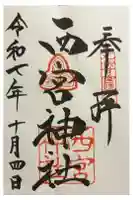 奉拝
西宮神社
令和七年十月四日
西宮